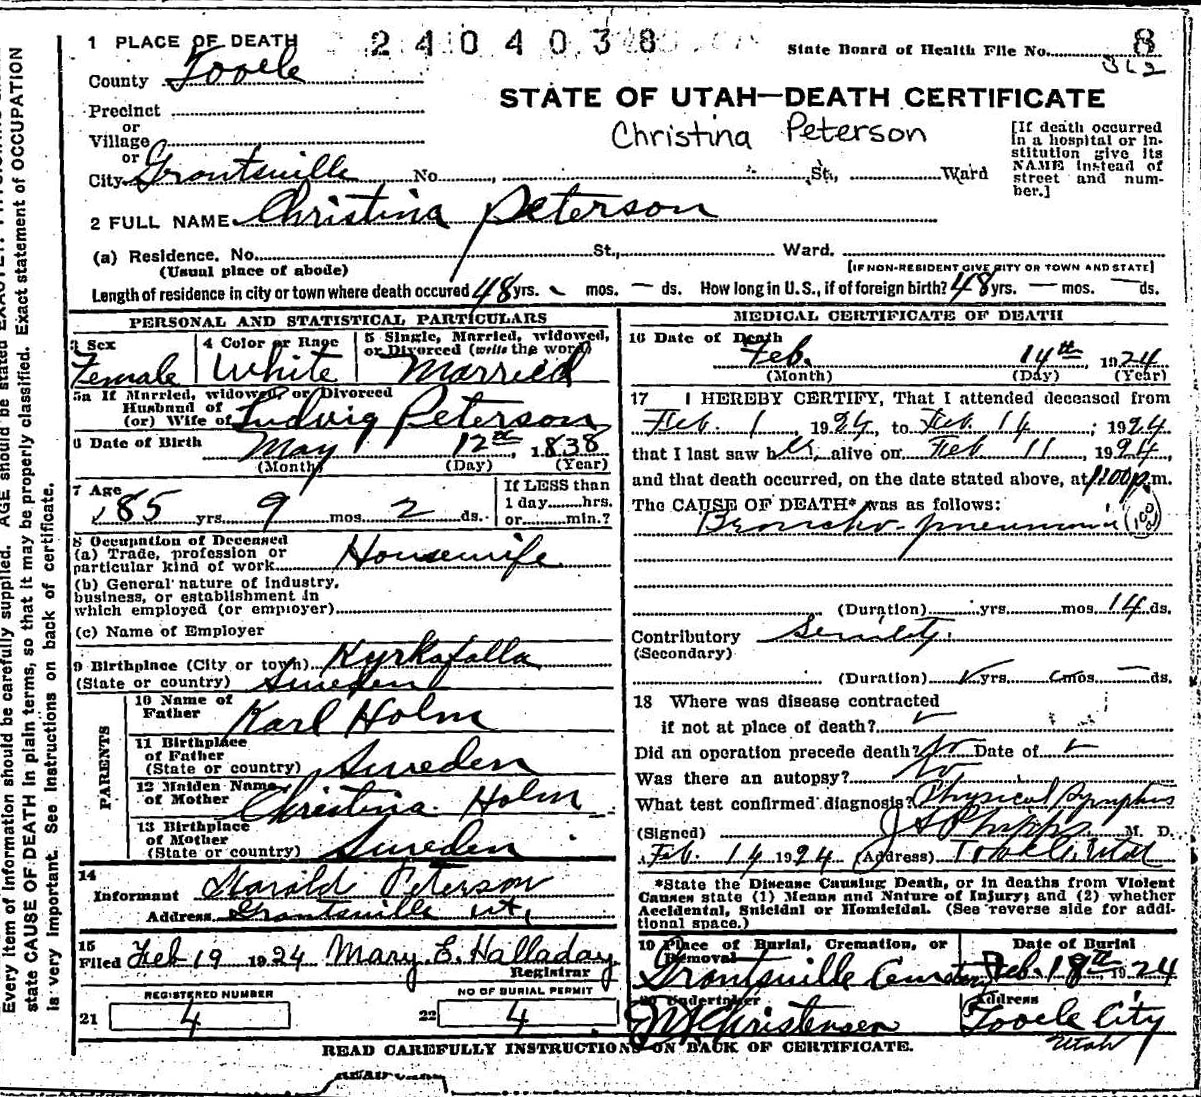 1 PLACE OF DEATH 2404038
State Board of Health File No. 8
362
County Tooele
STATE OF UTAH—DEATH CERTIFICATE
Precinct
or
Village
or
Christina Peterson
[If death occurred in a hospital or in-
stitution give its
NAME instead of
street and num-
ber.]
City Grantsville No. St., Ward
2 FULL NAME Christina Peterson
(a) Residence. No. St., Ward.
(Usual place of abode) [IF NON-RESIDENT GIVE CITY OR TOWN AND STATE]
Length of residence in city or town where death occured 48 yrs. - mos. - ds. How long in U.S., if of foreign birth? 48 yrs. - mos. - ds.
PERSONAL AND STATISTICAL PARTICULARS
3 Sex Female
4 Color or Race White
5 Single, Married, widowed,
or Divorced (write the word)
Married
5a If Married, widowed, or Divorced
Husband of
(or) Wife of Ludvig Peterson
6 Date of Birth May 12th, 1838
(Month) (Day) (Year)
7 Age 85 yrs. 9 mos. 2 ds.
If LESS than
1 day......hrs.
or......min.?
8 Occupation of Deceased
(a) Trade, profession or
particular kind of work Housewife
(b) General nature of Industry,
business, or establishment in
which employed (or employer)
(c) Name of Employer
9 Birthplace (City or town) Kyrkofalla
(State or country) Sweden
PARENTS
10 Name of
Father Karl Holm
11 Birthplace
of Father
(State or country) Sweden
12 Maiden Name
of Mother Christina Holm
13 Birthplace
of Mother
(State or country) Sweden
14
Informant Harald Peterson
Address Grantsville Ut,
15
Filed Feb 19 1924 Mary E. Halladay
Registrar
REGISTERED NUMBER
21 4
NO OF BURIAL PERMIT
22 4
MEDICAL CERTIFICATE OF DEATH
16 Date of Death
Feb. 14th 1924
(Month) (Day) (Year)
17 I HEREBY CERTIFY, That I attended deceased from
Feb. 1, 1924, to Feb. 14; 1924
that I last saw her alive on Feb 11, 1924,
and that death occurred, on the date stated above, at p.m.
The CAUSE OF DEATH* was as follows:
Broncho-pneumonia (100)
(Duration) yrs. mos. 14 ds.
Contributory Senility.
(Secondary)
(Duration) yrs. mos. ds.
18 Where was disease contracted
if not at place of death?
Did an operation precede death? No Date of
Was there an autopsy? No
What test confirmed diagnosis? Physical Symptms
(Signed) J S Phipps M. D.
Feb. 14 1924 (Address) Tooele, Utah
*State the Disease Causing Death, or in deaths from Violent
Causes state (1) Means and Nature of Injury; and (2) whether
Accidental, Suicidal or Homicidal. (See reverse side for addi-
tional space.)
19 Place of Burial, Cremation, or
Removal
Grantsville Cemetery
Date of Burial
Feb. 18th 1924
20 Undertaker
Christensen
Address
Tooele City
Utah
READ CAREFULLY INSTRUCTIONS ON BACK OF CERTIFICATE.
Every item of information should be carefully supplied. AGE should be stated EXACTLY.
state CAUSE OF DEATH in plain terms, so that it may be properly classified. Exact statement of OCCUPATION
is very important. See Instructions on back of certificate.